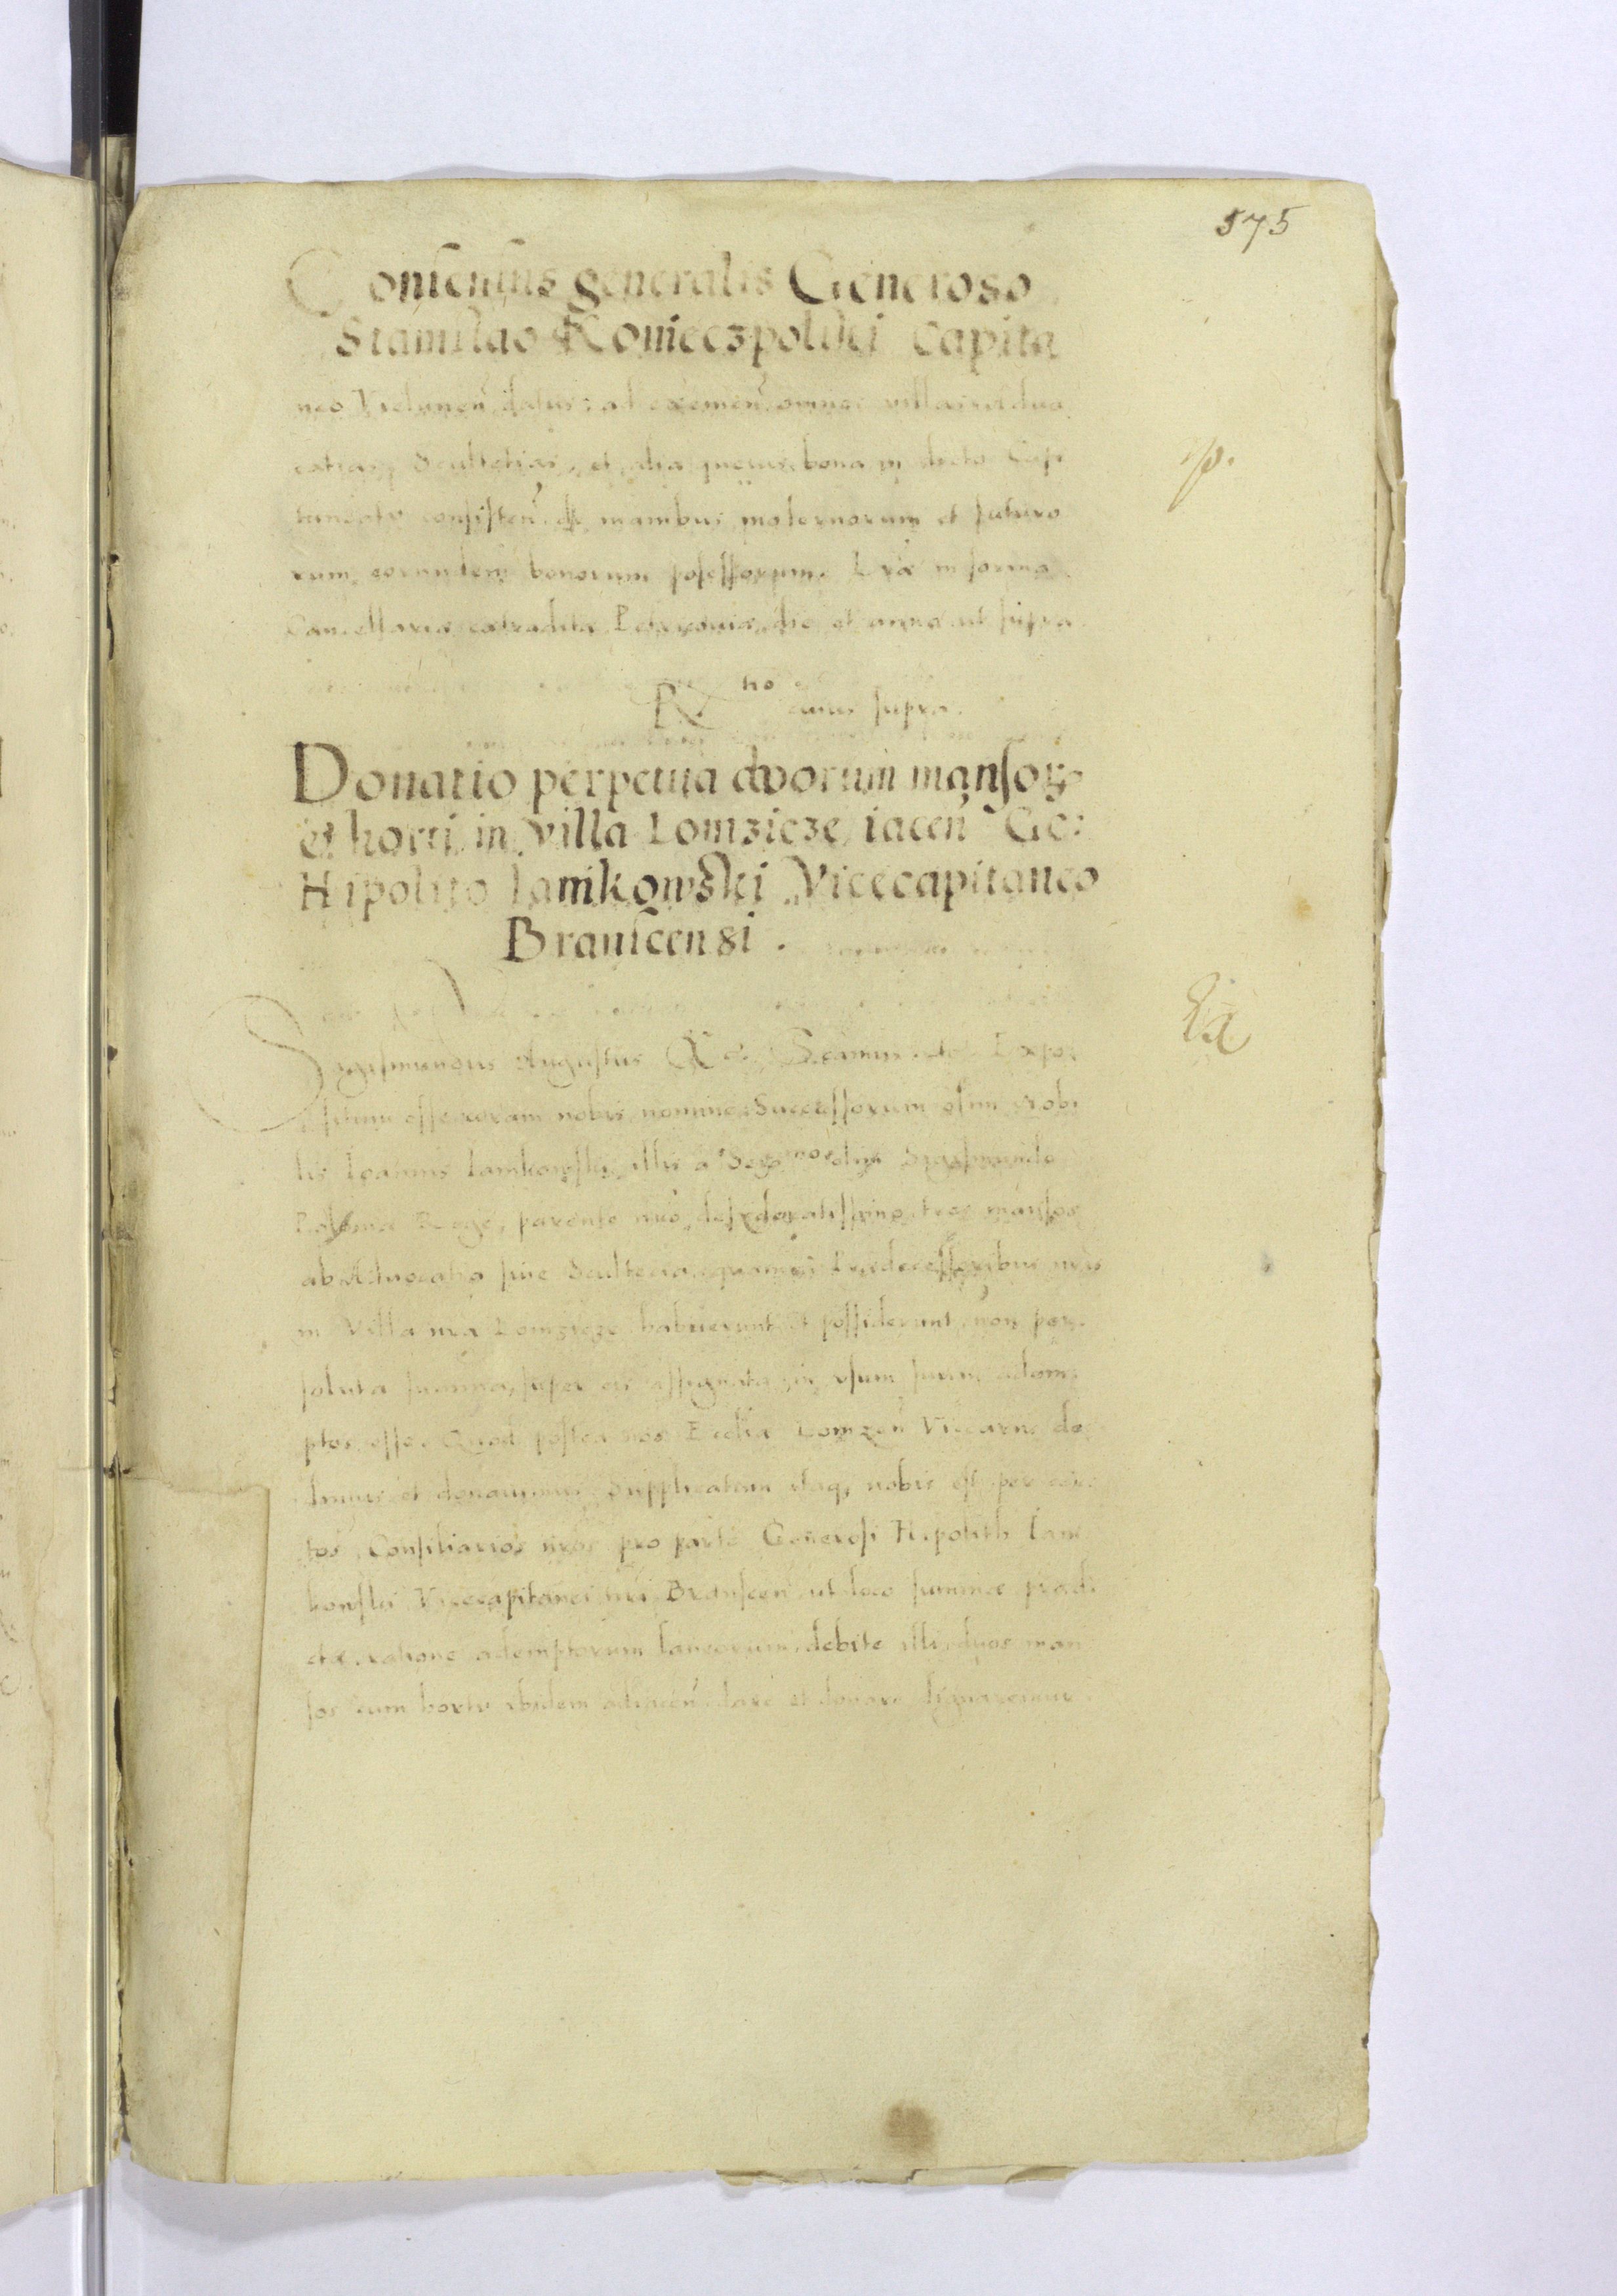 575
Consensus generalis Generoso
Stanislao Konieczpolski Capita
neo Vielunen̄ datus ad eximen̄ omnes villas advo
catias, Scultetias, et alia quevis bona in dicto Capi
taneatu consisten̄ de manibus modernorum et futuro
rum eorundem bonorum possessorum. Lr̄æ in forma
Cancellariæ extradita Petrcoviæ, die et anno ut supra
R tio cuius supra.
Donatio perpetua duorum mansorꝫ
et horti in villa Lomzicze iacen̄ Ge:
Hipolito Iamkowski Vicecapitaneo
Branscensi.
Sigismundus Augustus &c. Expo
situm esse coram nobis nomine Successorum olim Nobi
lis Ioannis Iamkowski, illis a Sermo olim Sigismundo
Poloniæ Rege, parente nr̄o desyderatissimo tres mansos
ab Advocatia sive Scultetia, quam Prædecessoribus nr̄is
in Villa nr̄a Lomzicze habuerunt et possiderunt, non per
soluta summa, super eis assignata, in usum suum adem
ptos esse. Quod postea nos Ecclīæ Lomzen̄ Vicarns de
dimus et donavimus. Supplicatum itaqꝫ nobis est per cer
tos Consiliarios nr̄os pro parte Generosi Hipolith Iam
kowski Vicecapitanei nr̄i Branscen̄ ut loco summæ prædi
ctæ ratione ademptorum laneorum debite illi, duos man
sos cum horto ibidem adiacen̄ dare et donare dignaremur